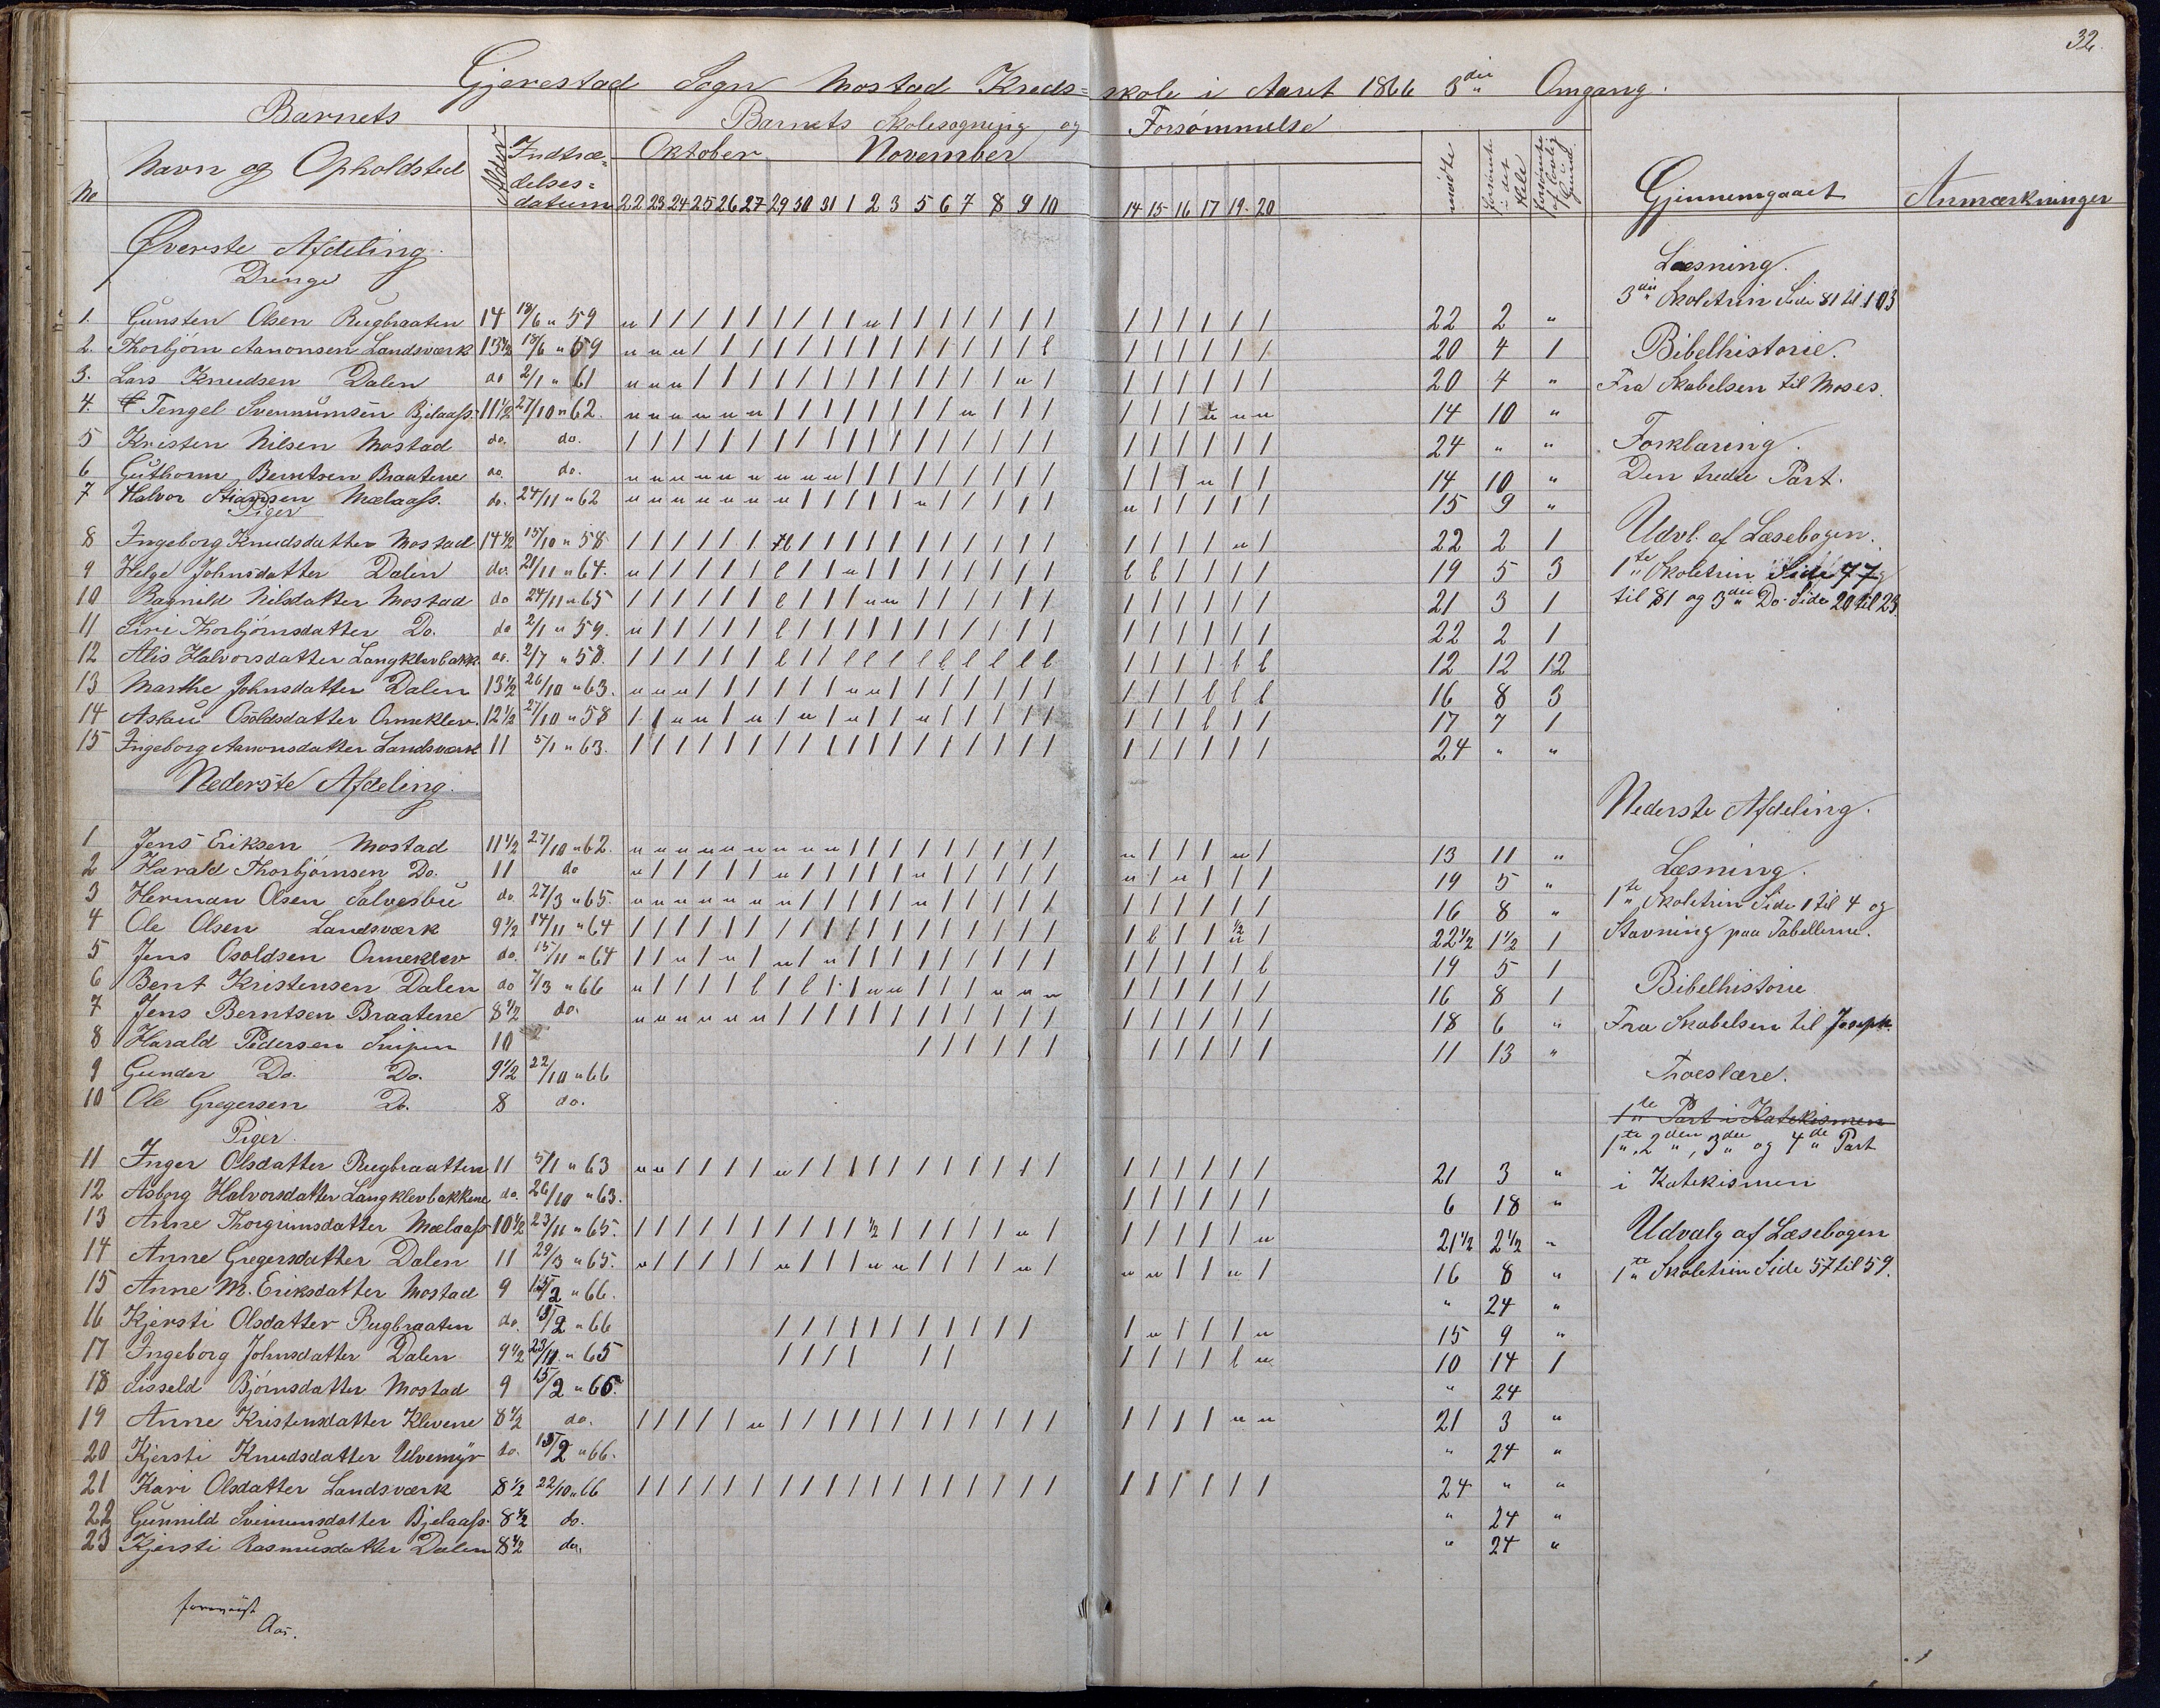 32.
Gjerestad Sogn Mostad Kreds=skole i Aaret 1866 3die Omgang.
Barnets Barnets Skolesøgning og Forsømmelse
No Navn og Opholdsted Alder Indtræ=delses=datum Oktober November mødte forsømte i det Hele forsømte af lovlig Grund. Gjennemgaaet Anmærkninger
22 23 24 25 26 27 29 30 31 1 2 3 5 6 7 8 9 10 14 15 16 17 19 20
Øverste Afdeling.
Drenge
1. Gunsten Olsen Rugbraaten 14 18/6 " 59 u / / / / / / / / / u / / / / / / / / / / / / / 22 2 "
2. Thorbjørn Aanonsen Landsværk 13 1/2 18/6 " 59 u u u / / / / / / / / / / / / / / l / / / / / / 20 4 1
3. Lars Knudsen Dalen do 2/1 " 61 u u u / / / / / / / / / / / / / u / / / / / / / 20 4 "
4. Tengel Svennumsen Bjelaass. 11 1/2 27/10 " 62. u u u u u u / / / / / / / / u / / / / / / u u u 14 10 "
5 Kristen Nilsen Mostad do. do. / / / / / / / / / / / / / / / / / / / / / / / / 24 " "
6 Guthorm Berntsen Braatene do. do. u u u u u u u u u / / / / / / / / / / / / u / / 14 10 "
7 Halvor Mælaass. do. 24/11 " 62 u u u u u u u / / / / / u / / / / / u / / / / / 15 9 "
Piger
8 Ingeborg Knudsdatter Mostad 14 1/2 13/10 " 58 / / / / / / l / / / / / / / / / / / / / / / u / 22 2 1
9 Helge Johnsdatter Dalen do. 21/11 " 64. u / / / / / l / / u / / / / / / / / l l / / / / 19 5 3
10 Ragnild Nilsdatter Mostad do 24/11 " 65 / / / / / / l / / / u u / / / / / / / / / / / / 21 3 1
11 Siri Thorbjørnsdatter Do. do 2/1 " 59. u / / / / / l / / / / / / / / / / / / / / / / / 22 2 1
12 Alis Halvorsdatter Langklevbakk. do. 2/7 " 58. / / / / / / l / / l l l l l l l l l / / / / l l 12 12 12
13 Marthe Johnsdatter Dalen 13 1/2 26/10 " 63. u u u / / / / / / u u / / / / / / / / / / l l l 16 8 3
14 Aslau Osoldsdatter Ormeklev. 12 1/2 27/10 " 58 / / u u / u / u / u / / u / / / / / / / / l / / 17 7 1
15 Ingeborg Aanonsdatter Landsværk 11 5/1 " 63. / / / / / / / / / / / / / / / / / / / / / / / / 24 " "
Nederste Afdeling.
1 Jens Eriksen Mostad 11 1/2 27/10 " 62. u u u u u u u u u / / / / / / / / / u / / / u / 13 11 "
2 Harald Thorbjørnsen Do. 11 do u / / / / / u / / / / / u / / / / / u / u / / / 19 5 "
3 Herman Olsen Salvesbu do. 27/3 " 65. u u u u u u u / / / / / u / / / / / / / / / / / 16 8 "
4 Ole Olsen Landsværk 9 1/2 14/11 " 64 / / / / / / / / / / / / / / / / / / / l / / 1/2 u / 22 1/2 1 1/2 1
5 Jens Osoldsen Ormeklev do. 15/11 " 64 / / u / u / u / u / / / / / / / / / / / / / / l 19 5 1
6 Bent Kristensen Dalen do 7/3 " 66 u / / / / l / l / / u u / / / u u u / / / / / / 16 8 1
7 Jens Berntsen Braatene 8 1/2 do. u u u u u u / / / / / / / / / / / / / / / / / / 18 6 "
8 Harald Pedersen Snipen 10 / / / / / / / / / / / 11 13 "
9 Gunder Do. Do. 9 1/2 22/10 " 66
10 Ole Gregersen Do. 8 do.
Piger.
11 Inger Olsdatter Rugbraatten 11 5/1 " 63 u u / / / / u / / / / / / / / / / / / / / / / / 21 3 "
12 Asborg Halvorsdatter Langklevbakkene do. 26/10 " 63. / / / / / / 6 18 "
13 Anne Thorgrimsdatter Mælaass 10 1/2 23/11 " 65. / / / / / / / / / / 1/2 / / / / / u / / / / / / u 21 1/2 2 1/2 "
14 Anne Gregersdatter Dalen 11 29/3 " 65. u / / / / / u / / / u u / / / / u / u u / / u / 16 8 "
15 Anne M. Eriksdatter Mostad 9 15/2 " 66. " 24 "
16 Kjersti Olsdatter Rugbraaten do. 15/2 " 66 / / / / / / / / / / / / u / / / u 15 9 "
17 Ingeborg Johnsdatter Dalen 9 1/2 23/11 " 65 / / / / / / / / / / l u 10 14 1
18 Sisseld Bjørnsdatter Mostad 9 15/2 " 66. " 24
19 Anne Kristensdatter Klevene 8 1/2 do. / / / / / u / / / / / / / / / / / / / / / / u u 21 3 "
20 Kjersti Knudsdatter Ulvemyr do. 15/2 " 66. " 24 "
21 Kari Olsdatter Landsværk 8 1/2 22/10 " 66 / / / / / / / / / / / / / / / / / / / / / / / / 24 " "
22 Gunnild Svenumsdatter Bjelaass. 8 1/2 do. " 24 "
23 Kjersti Rasmusdatter Dalen 8 1/2 do. " 24 "
Aas.
Læsning.
3die Skoletrin Side 81 til 103
Bibelhistorie.
Fra Skabelsen til Moses.
Forklaring.
Den tredie Part.
Udvl. af Læsebogen.
1te Skoletrin Side 77
til 81 og 3die Do. Side 20 til 23.
Nederste Afdeling.
Læsning.
1te Skoletrin Side 1 til 4 og
Stavning paa Tabellerne.
Bibelhistorie
Fra Skabelsen til Joseph.
Troeslære.
1te Part i Katekismen
1te, 2den, 3die og 4de Part
i Katekismen
Udvalg af Læsebogen
1te Skoletrin Side 57 til 59.